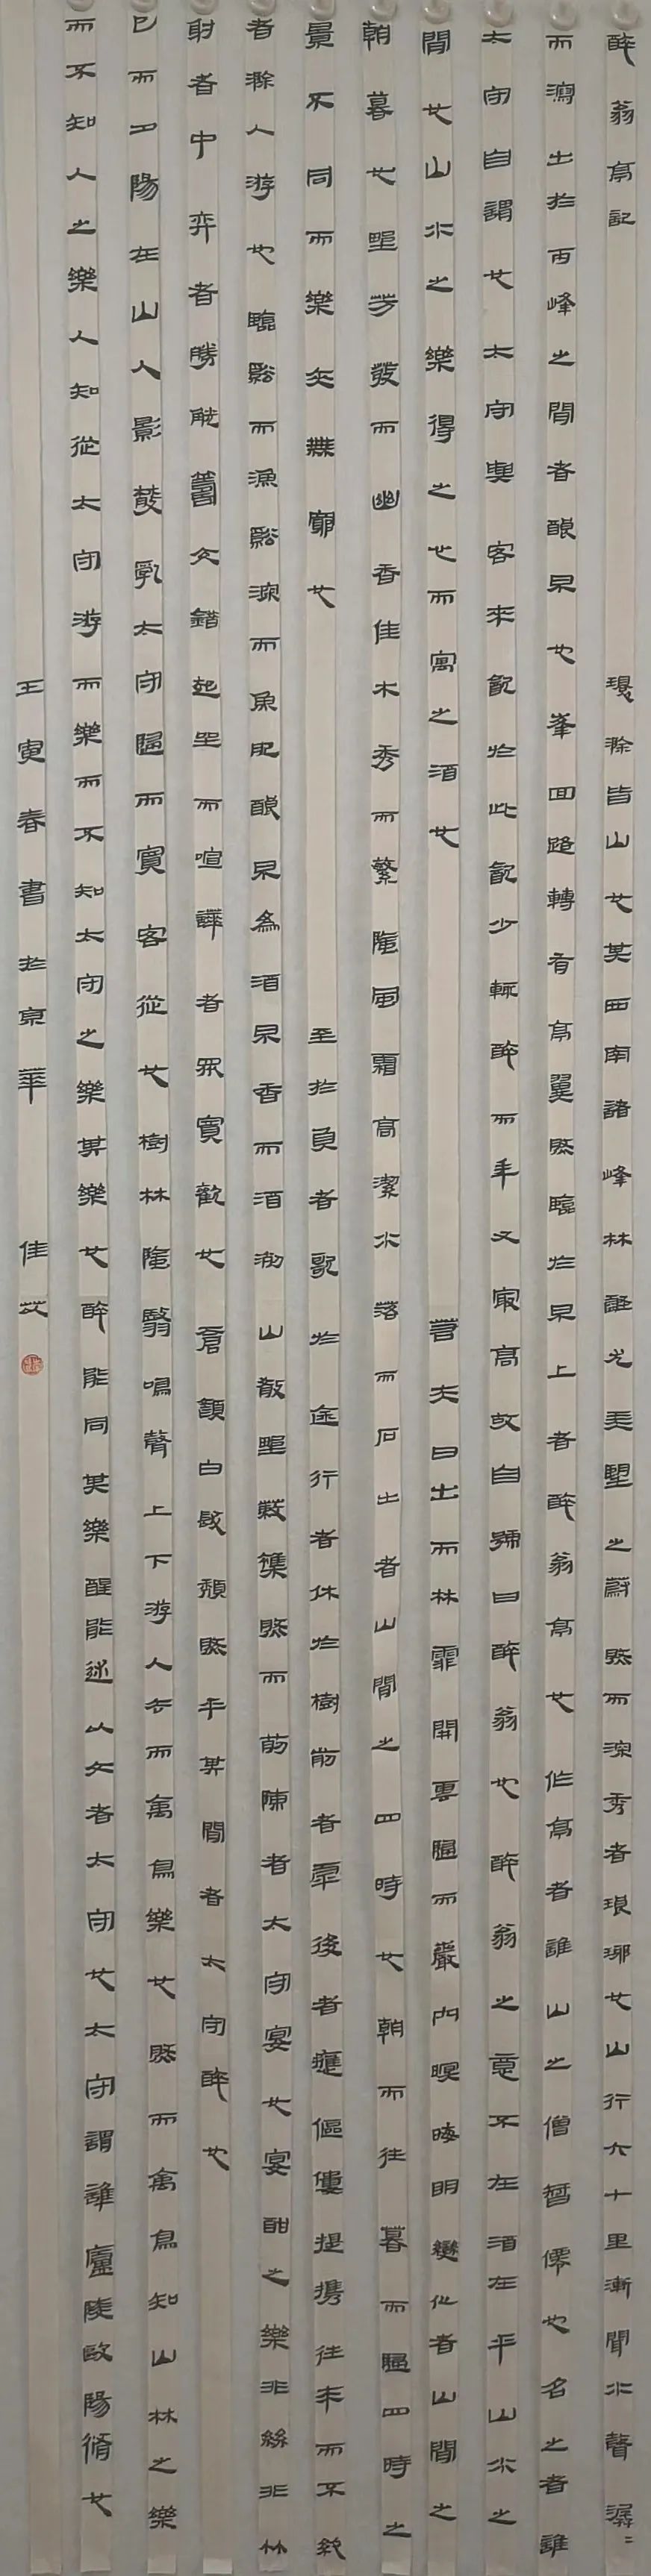 醉翁亭記 環滁皆山也其西南諸峰林壑尤美望之蔚然而深秀者琅琊也山行六七里漸聞水聲潺〻
而瀉出於兩峰之間者釀泉也峯回路轉有亭翼然臨於泉上者醉翁亭也作亭者誰山之僧智僊也名之者誰
太守自謂也太守與客來飲於此飲少輒醉而年又最高故自號曰醉翁也醉翁之意不在酒在乎山水之
間也山水之樂得之心而寓之酒也 若夫日出而林霏開雲歸而巖穴暝晦明變化者山間之
朝暮也野芳發而幽香佳木秀而繁陰風霜高潔水落而石出者山間之四時也朝而往暮而歸四時之
景不同而樂亦無窮也 至於負者歌於途行者休於樹前者呼後者應傴僂提攜往來而不絕
者滁人游也臨谿而漁谿深而魚肥釀泉為酒泉香而酒洌山肴野蔌雜然而前陳者太守宴也宴酣之樂非絲非竹
射者中弈者勝觥籌交錯起坐而喧譁者眾賓歡也蒼顏白髮頹然乎其間者太守醉也
已而夕陽在山人影散亂太守歸而賓客從也樹林陰翳鳴聲上下游人去而禽鳥樂也然而禽鳥知山林之樂
而不知人之樂人知從太守游而樂而不知太守之樂其樂也醉能同其樂醒能述以文者太守也太守謂誰廬陵歐陽脩也
壬寅春書於京華 佳